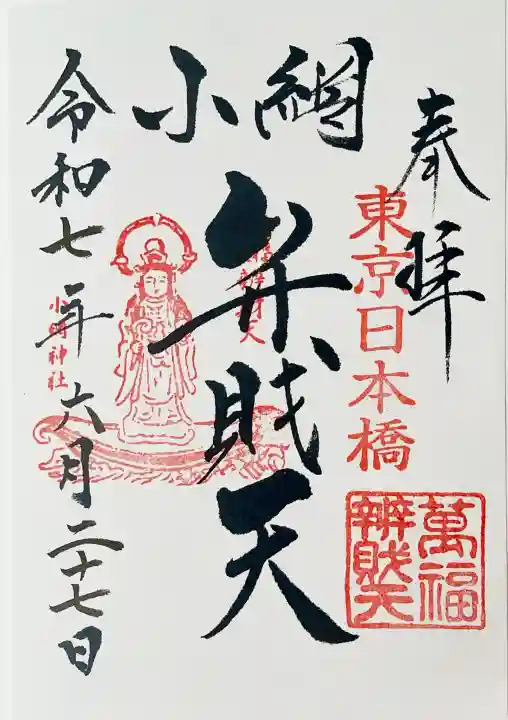 奉拝
東京日本橋
萬福
辨財天
小網
弁財天
令和七年六月二十七日
小網神社